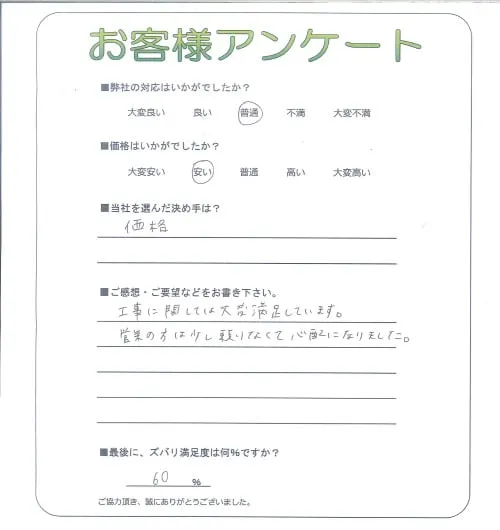 お客様アンケート
■弊社の対応はいかがでしたか？
大変良い 良い 普通 不満 大変不満
■価格はいかがでしたか？
大変安い 安い 普通 高い 大変高い
■当社を選んだ決め手は？
価格
■ご感想・ご要望などをお書き下さい。
工事に関しては大変満足しています。
営業の方は少し頼りなくて心配になりました。
■最後に、ズバリ満足度は何％ですか？
60 ％
ご協力頂き、誠にありがとうございました。